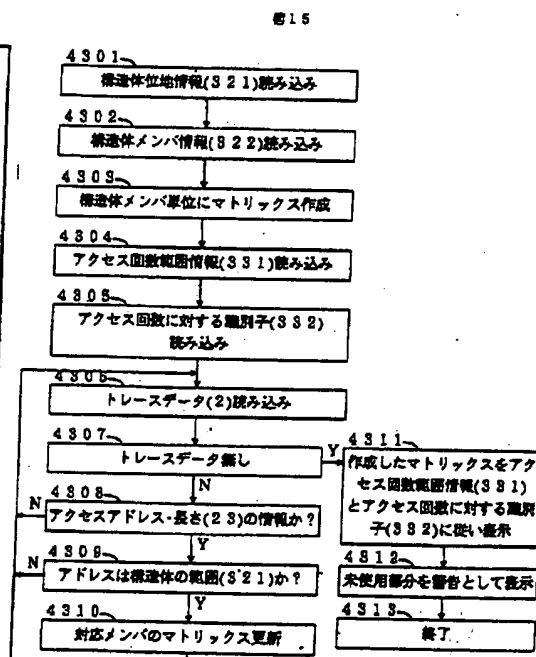 図15
4301
構造体位地情報(321)読み込み
4302
構造体メンバ情報(322)読み込み
4303
構造体メンバ単位にマトリックス作成
4304
アクセス回数範囲情報(331)読み込み
4305
アクセス回数に対する識別子(332)
読み込み
4306
トレースデータ(2)読み込み
4307
トレースデータ無し
Y
N
4308
アクセスアドレス・長さ(23)の情報か?
N
Y
4309
アドレスは構造体の範囲(321)か?
N
Y
4310
対応メンバのマトリックス更新
4311
作成したマトリックスをアク
セス回数範囲情報(331)
とアクセス回数に対する識別
子(332)に従い表示
4312
未使用部分を警告として表示
4313
終了